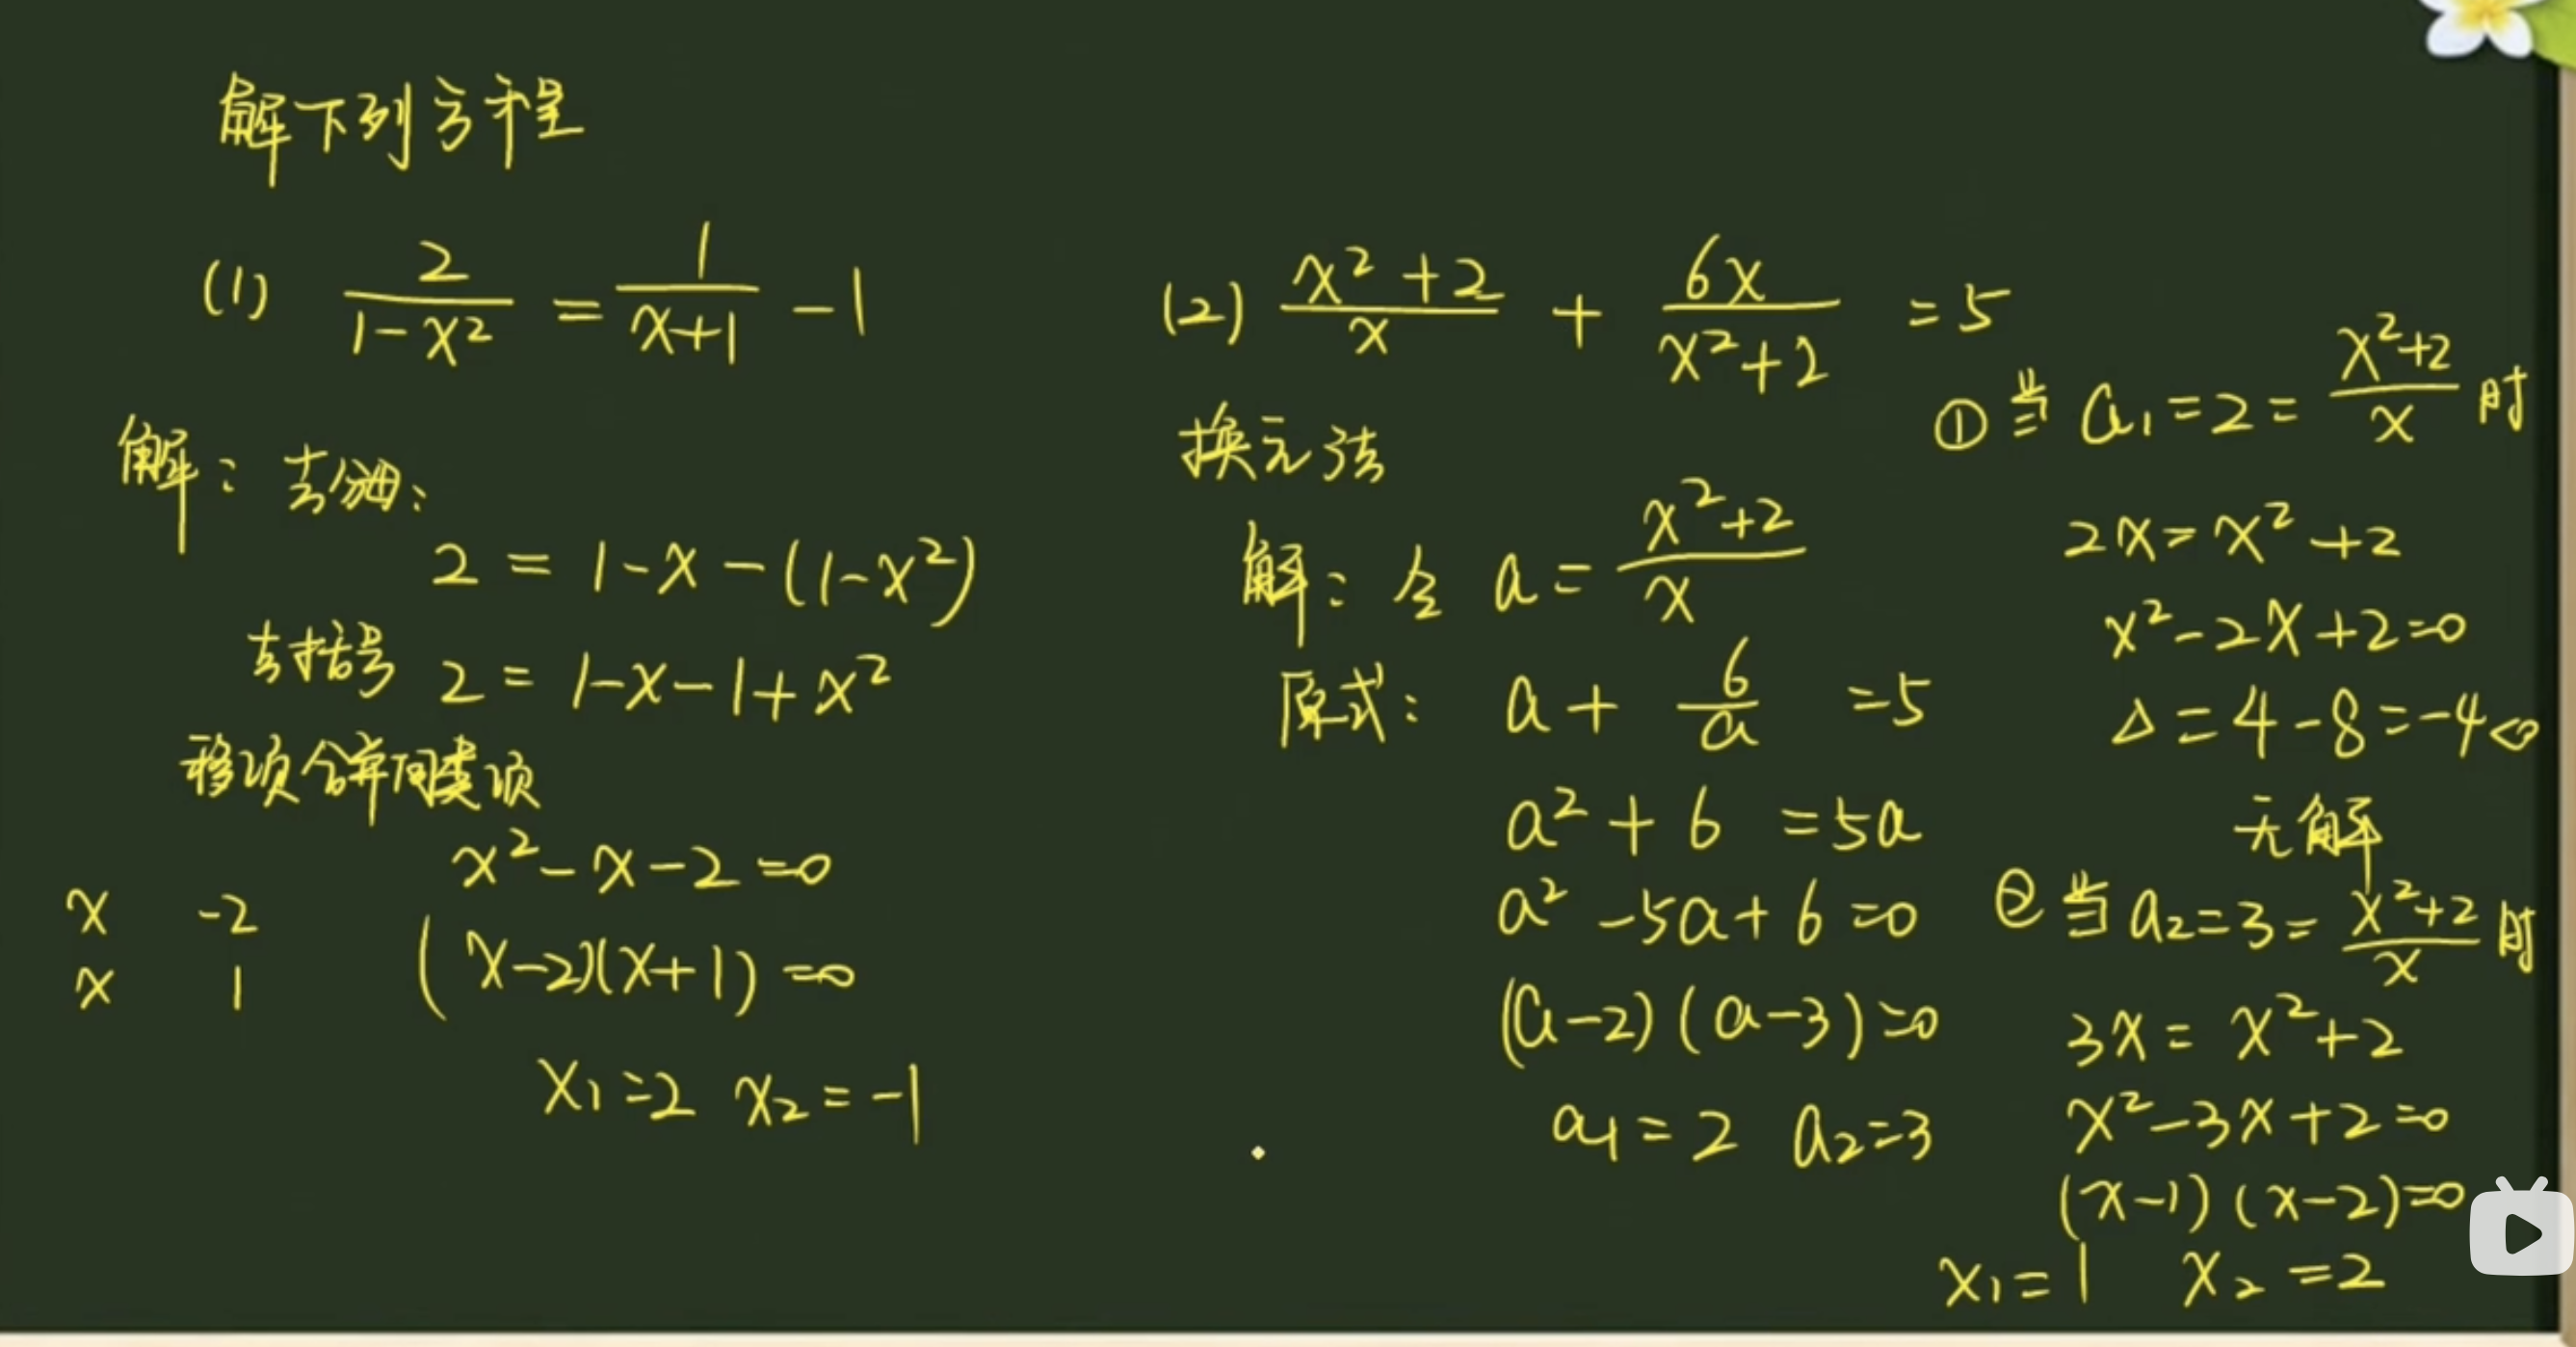 解下列方程
(1) 2/(1-x²) = 1/(x+1) -1
解：去分母：
2 = 1-x-(1-x²)
去括号 2 = 1-x-1+x²
移项合并同类项
x²-x-2=0
x -2
x 1
(x-2)(x+1)=0
x₁=2 x₂=-1
(2) (x²+2)/x + 6x/(x²+2) =5
换元法
解：令 a= (x²+2)/x
原式： a+ 6/a =5
a²+6 =5a
a²-5a+6=0
(a-2)(a-3)=0
a₁=2 a₂=3
①当 a₁=2= (x²+2)/x 时
2x=x²+2
x²-2x+2=0
Δ=4-8=-4<0
无解
②当 a₂=3= (x²+2)/x 时
3x=x²+2
x²-3x+2=0
(x-1)(x-2)=0
x₁=1 x₂=2